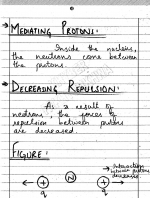 → MEDIATING PROTONS:
Inside the nucleus,
the neutrons come between
the protons.
→ DECREASING REPULSION:
As a result of
neutrons, the forces of
repulsion between protons
are decreased.
FIGURE:
→ Interaction
between protons
decreases.
+ N +
q q